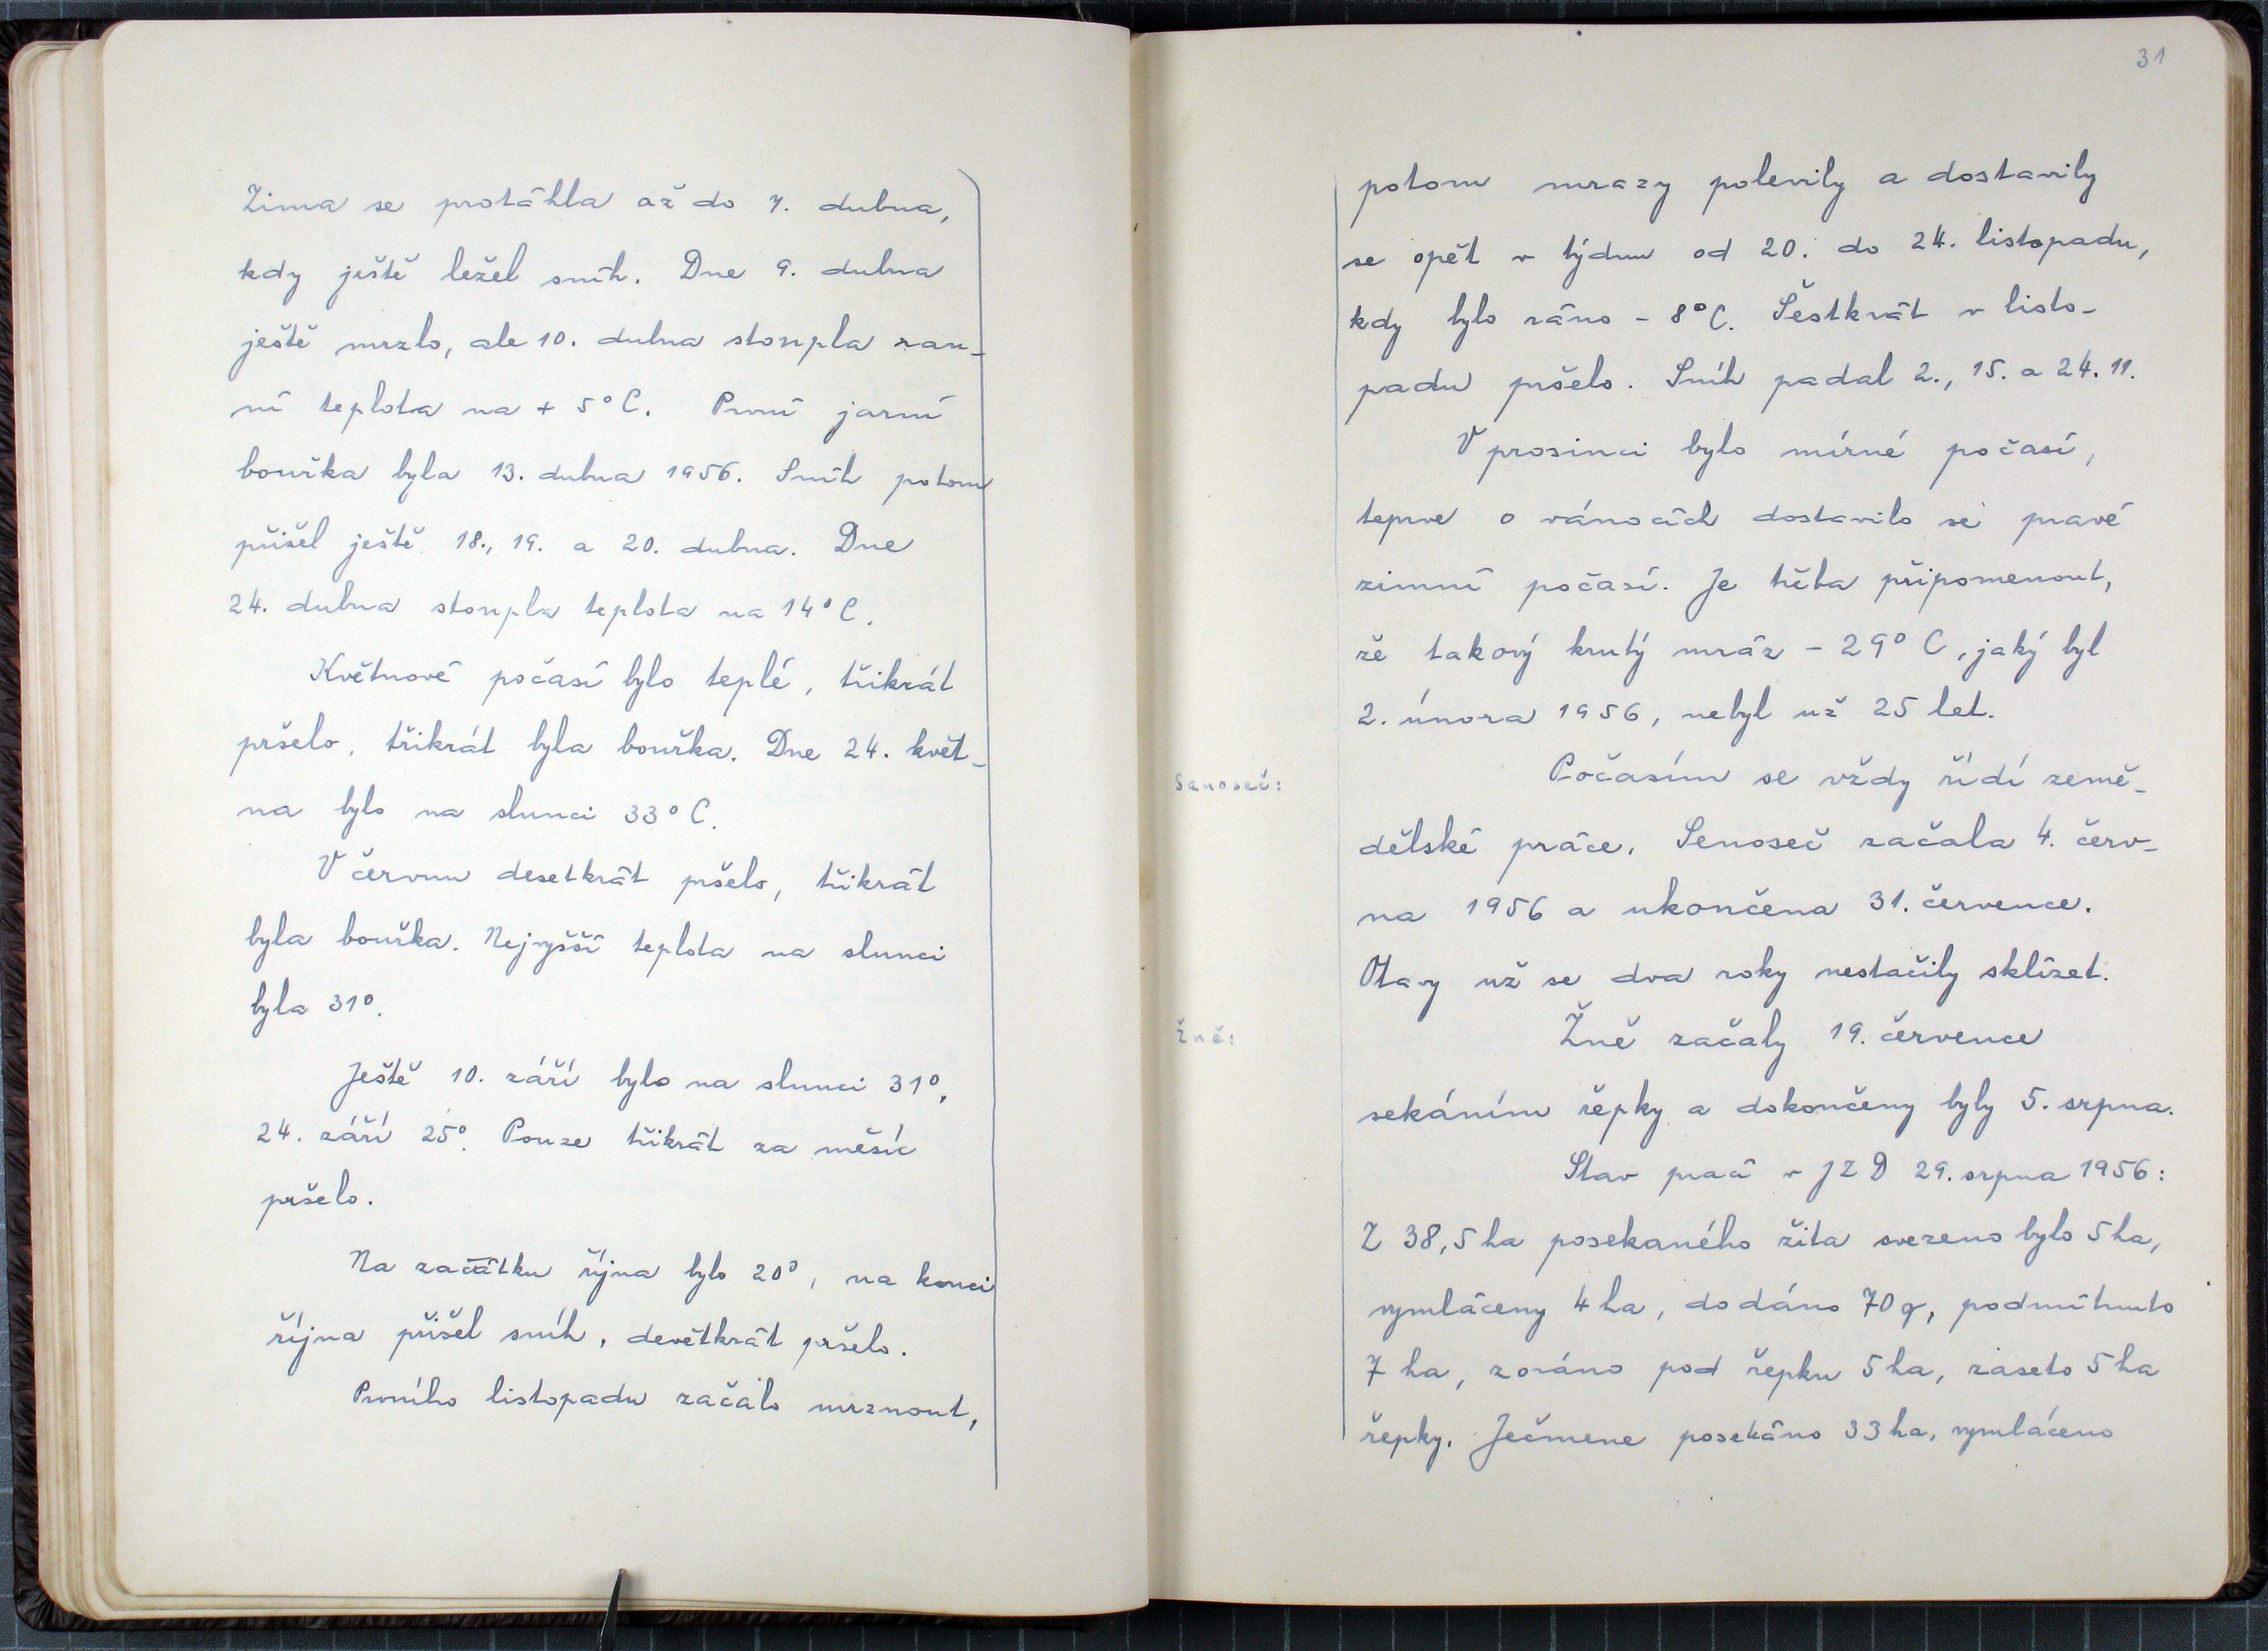 Zima se protáhla až do 7. dubna,
kdy ještě ležel sníh. Dne 9. dubna
ještě mrzlo, ale 10. dubna stoupla ran-
ní teplota na + 5° C. První jarní
bouřka byla 13. dubna 1956. Sníh potom
přišel ještě 18., 19. a 20. dubna. Dne
24. dubna stoupla teplota na 14° C.
Květnové počasí bylo teplé, třikrát
pršelo, třikrát byla bouřka. Dne 24. květ-
na bylo na slunci 33° C.
V červnu desetkrát pršelo, třikrát
byla bouřka. Nejvyšší teplota na slunci
byla 31°.
Ještě 10. září bylo na slunci 31°,
24. září 25°. Pouze třikrát za měsíc
pršelo.
Na začátku října bylo 20°, na konci
října přišel sníh, devětkrát pršelo.
Prvního listopadu začalo mrznout,
31
potom mrazy polevily a dostavily
se opět v týdnu od 20. do 24. listopadu,
kdy bylo ráno - 8° C. Šestkrát v listo-
padu pršelo. Sníh padal 2., 15. a 24. 11.
V prosinci bylo mírné počasí,
teprve o vánocích dostavilo se pravé
zimní počasí. Je třeba připomenout,
že takový krutý mráz - 29° C, jaký byl
2. února 1956, nebyl už 25 let.
Senoseč:
Počasím se vždy řídí země-
dělské práce. Senoseč začala 4. červ-
na 1956 a ukončena 31. července.
Otavy už se dva roky nestačily sklízet.
Žně:
Žně začaly 19. července
sekáním řepky a dokončeny byly 5. srpna.
Stav prací v JZD 29. srpna 1956:
Z 38,5 ha posekaného žita svezeno bylo 5 ha,
vymláceny 4 ha, dodáno 70 q, podmítnuto
7 ha, zoráno pod řepku 5 ha, zaseto 5 ha
řepky. Ječmene posekáno 33 ha, vymláceno